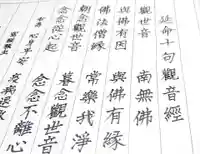 延命十句觀音經
觀世音　南無佛
與佛有因　與佛有緣
佛法僧緣　常樂我淨
朝念觀世音　暮念觀世音
念念從心起　念念不離心